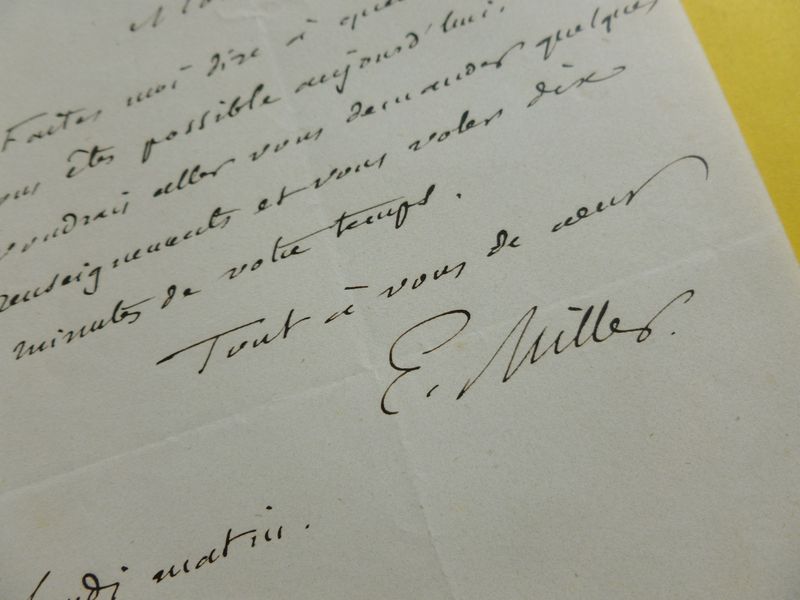 Faites moi dire à
êtes possible aujourd'hui.
voudrais aller vous demander quelques
renseignements et vous voler dix
minutes de votre temps.
Tout à vous de cœur
E. Miller.
matin.